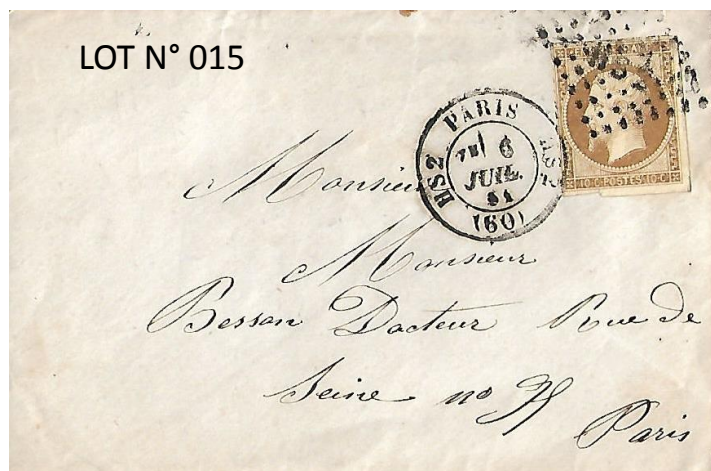 LOT N° 015
PARIS
HS2 HS2
7E 6
JUIL.
(60)
10 C POSTES 10 C
Monsieur
Monsieur
Besson Docteur Rue de
Seine no
Paris